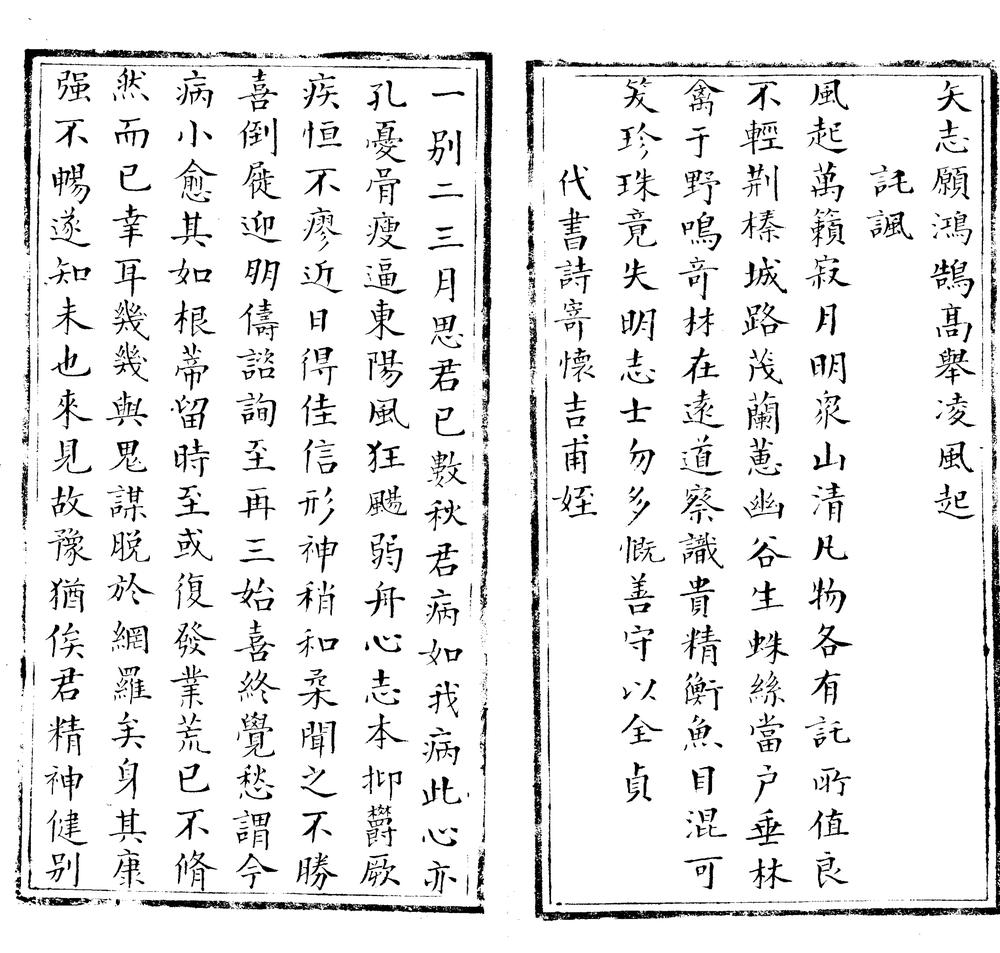 矢志願鴻鵠高舉凌風起
託諷
風起萬籟寂月明衆山清凡物各有託所值良
不輕荆榛城路茂蘭蕙幽谷生蛛絲當户垂林
禽于野鳴奇材在遠道察識貴精衡魚目混可
笑珍珠竟失明志士勿多慨善守以全貞
代書詩寄懷吉甫姪
一别二三月思君已數秋君病如我病此心亦
孔憂骨瘦逼東陽風狂颺弱舟心志本抑欝厥
疾恒不瘳近日得佳信形神稍和柔聞之不勝
喜倒屣迎朋儔諮詢至再三始喜終覺愁謂今
病小愈其如根蒂留時至或復發業荒已不脩
然而已幸耳幾幾與鬼謀脱於網羅矣身其康
强不暢遂知未也來見故豫猶俟君精神健别